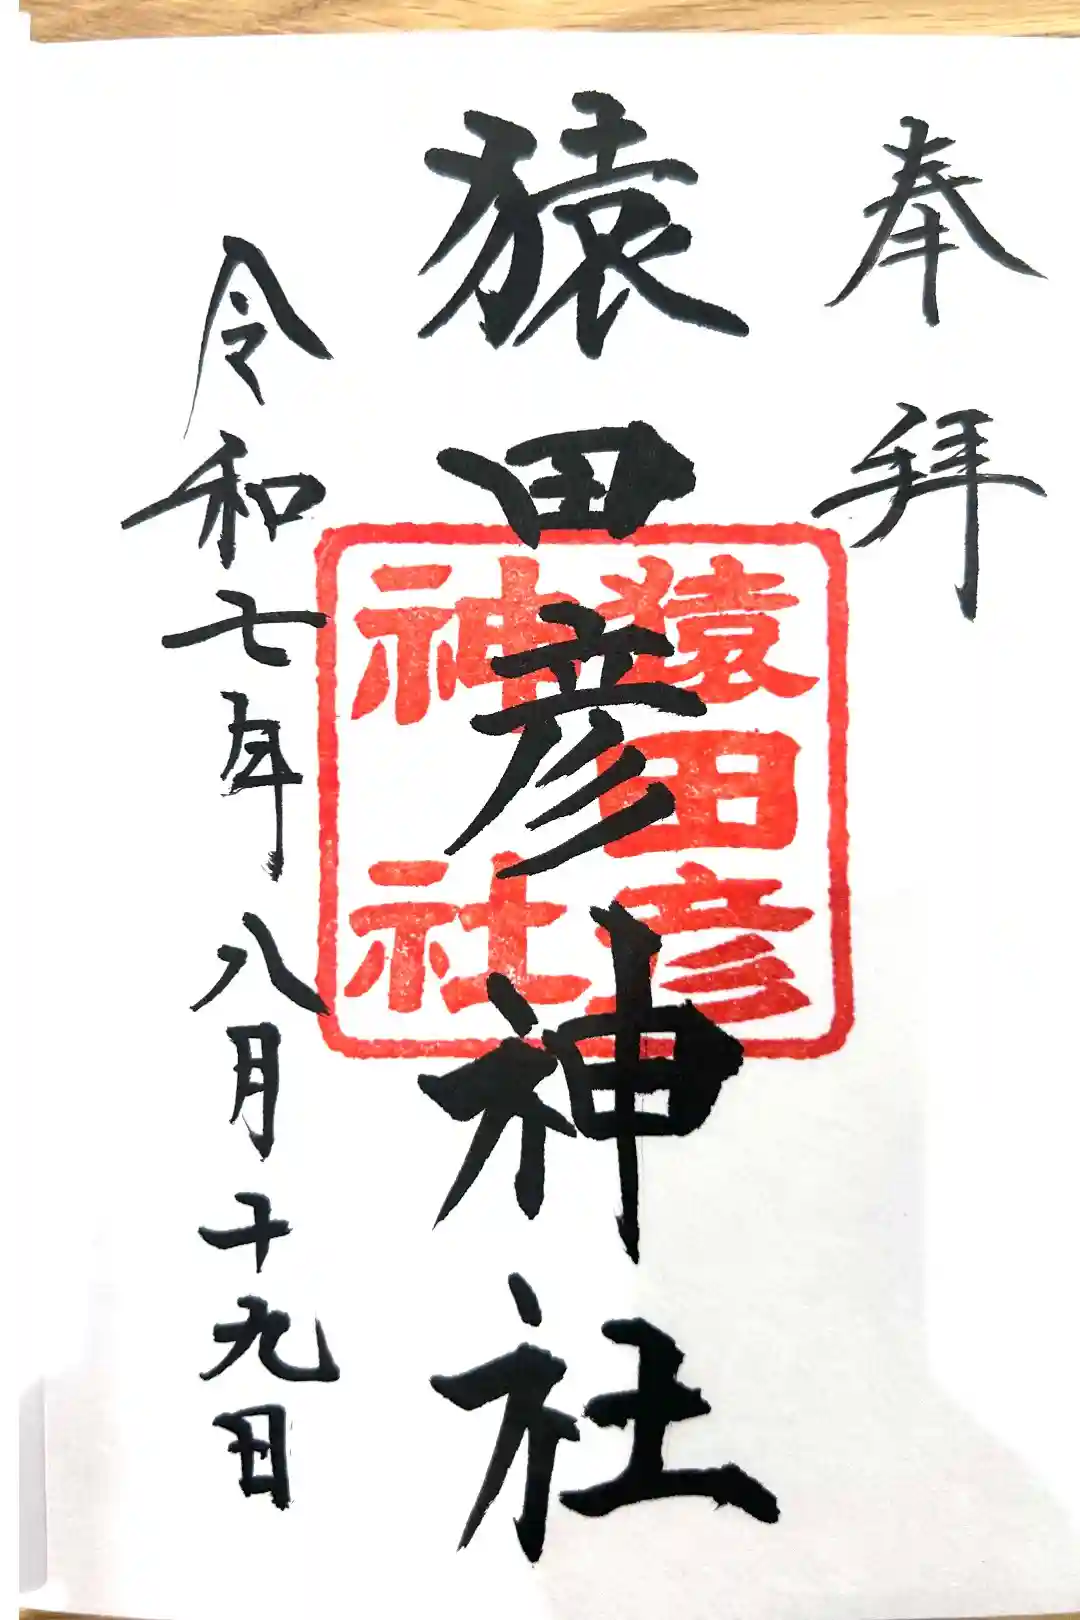 奉拝
猿田彦神社
猿田彦
神社
令和七年八月十九日